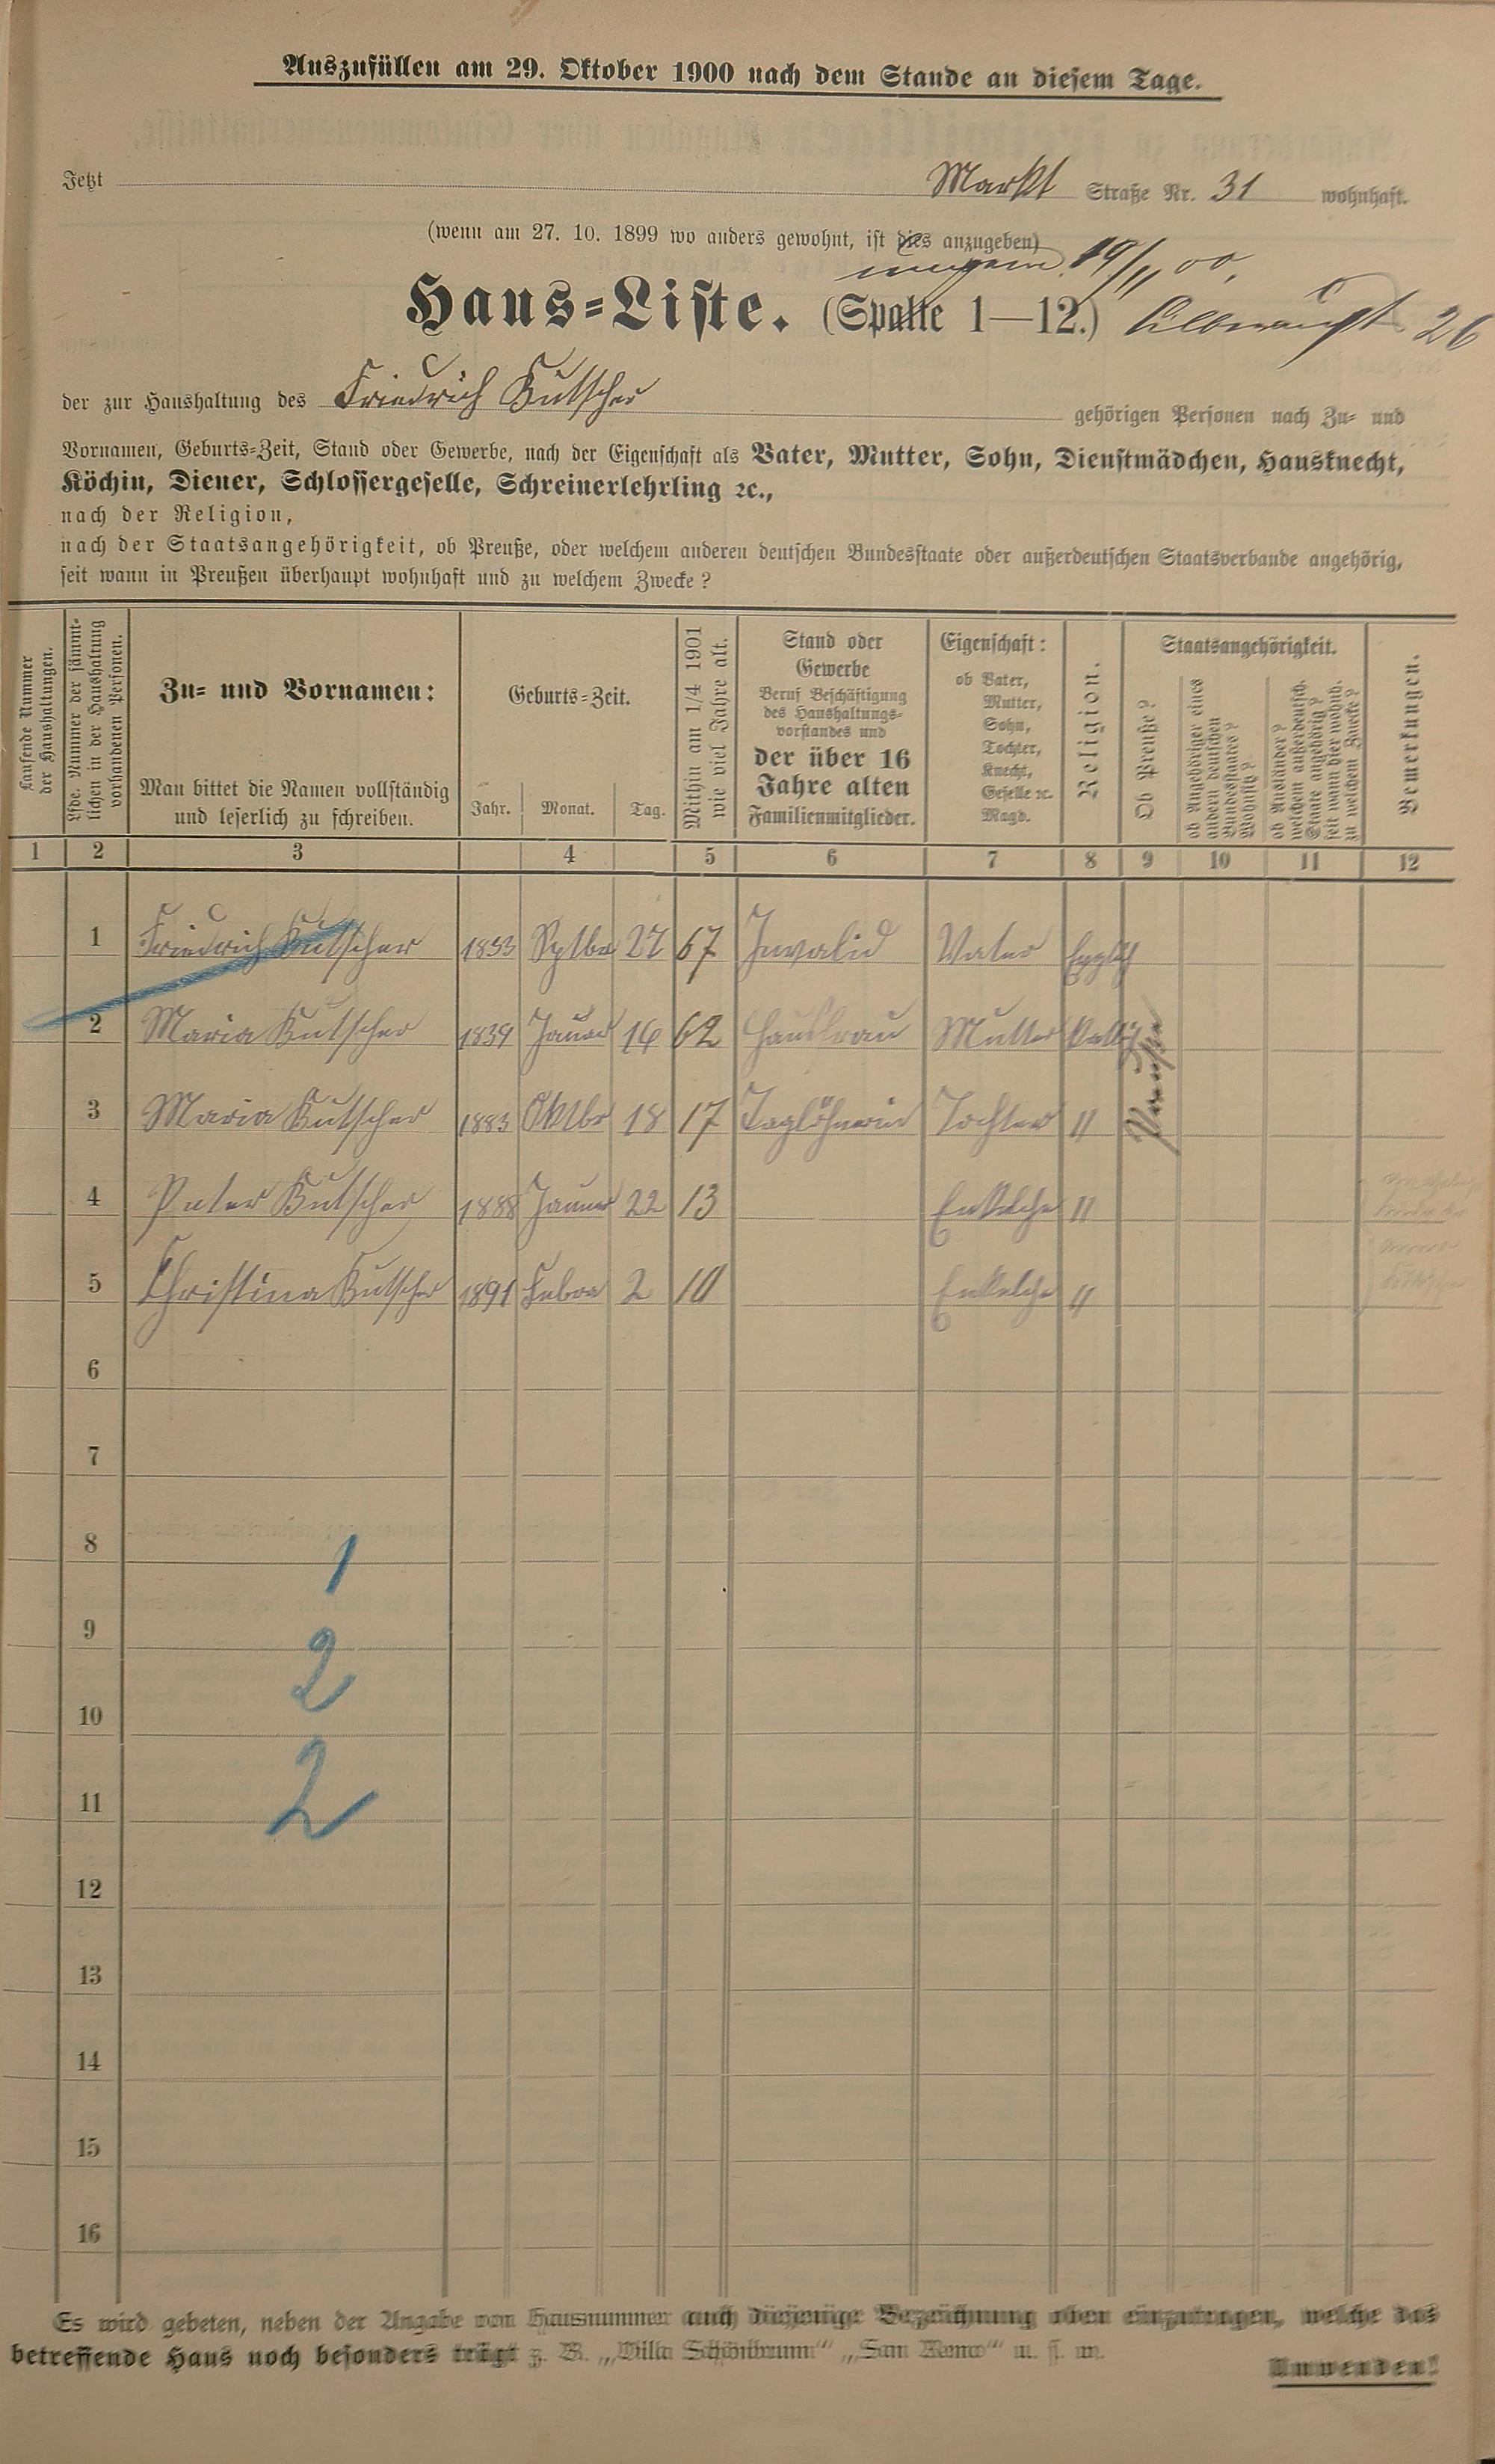 Auszufüllen am 29. Oktober 1900 nach dem Stande an diesem Tage.
Jetzt Markt Straße Nr. 31 wohnhaft.
(wenn am 27. 10. 1899 wo anders gewohnt, ist dies anzugeben)
19/11 00.
Haus-Liste. (Spalte 1—12.) 26
der zur Haushaltung des Friedrich Kutscher gehörigen Personen nach Zu- und
Vornamen, Geburts-Zeit, Stand oder Gewerbe, nach der Eigenschaft als Vater, Mutter, Sohn, Dienstmädchen, Hausknecht,
Köchin, Diener, Schlossergeselle, Schreinerlehrling ꝛc.,
nach der Religion,
nach der Staatsangehörigkeit, ob Preuße, oder welchem anderen deutschen Bundesstaate oder außerdeutschen Staatsverbande angehörig,
seit wann in Preußen überhaupt wohnhaft und zu welchem Zwecke?
Laufende Nummer
der Haushaltungen.
Lfde. Nummer der sämmt-
lichen in der Haushaltung
vorhandenen Personen.
Zu- und Vornamen:
Man bittet die Namen vollständig
und leserlich zu schreiben.
Geburts-Zeit.
Jahr. Monat. Tag.
Mithin am 1/4 1901
wie viel Jahre alt.
Stand oder
Gewerbe
Beruf Beschäftigung
des Haushaltungs-
vorstandes und
der über 16
Jahre alten
Familienmitglieder.
Eigenschaft:
ob Vater,
Mutter,
Sohn,
Tochter,
Knecht,
Geselle ꝛc.
Magd.
Religion.
Staatsangehörigkeit.
Ob Preuße?
ob Angehöriger eines
andern deutschen
Bundesstaates?
Wohnsitz?
ob Ausländer?
welchem außerdeutsch.
Staate angehörig?
seit wann hier wohnh.
zu welchem Zwecke?
Bemerkungen.
1 2 3 4 5 6 7 8 9 10 11 12
1 Friedrich Kutscher 1833 Sptbr 27 67 Invalid Vater
2 Maria Kutscher 1839 Januar 16 62 Hausfrau Mutter
3 Maria Kutscher 1883 Oktbr 18 17 Taglöhnerin Tochter "
Preuße
4 Peter Kutscher 1888 Januar 22 13 Enkelche "
5 Christina Kutscher 1891 Febra 2 10 Enkelche "
6
7
8
1
9
2
10
11
2
12
13
14
15
16
Es wird gebeten, neben der Angabe von Hausnummer auch diejenige Bezeichnung oben einzutragen, welche das
betreffende Haus noch besonders trägt z. B. „Villa Schönbrunn“ „San Remo“ u. s. w.
Umwenden!